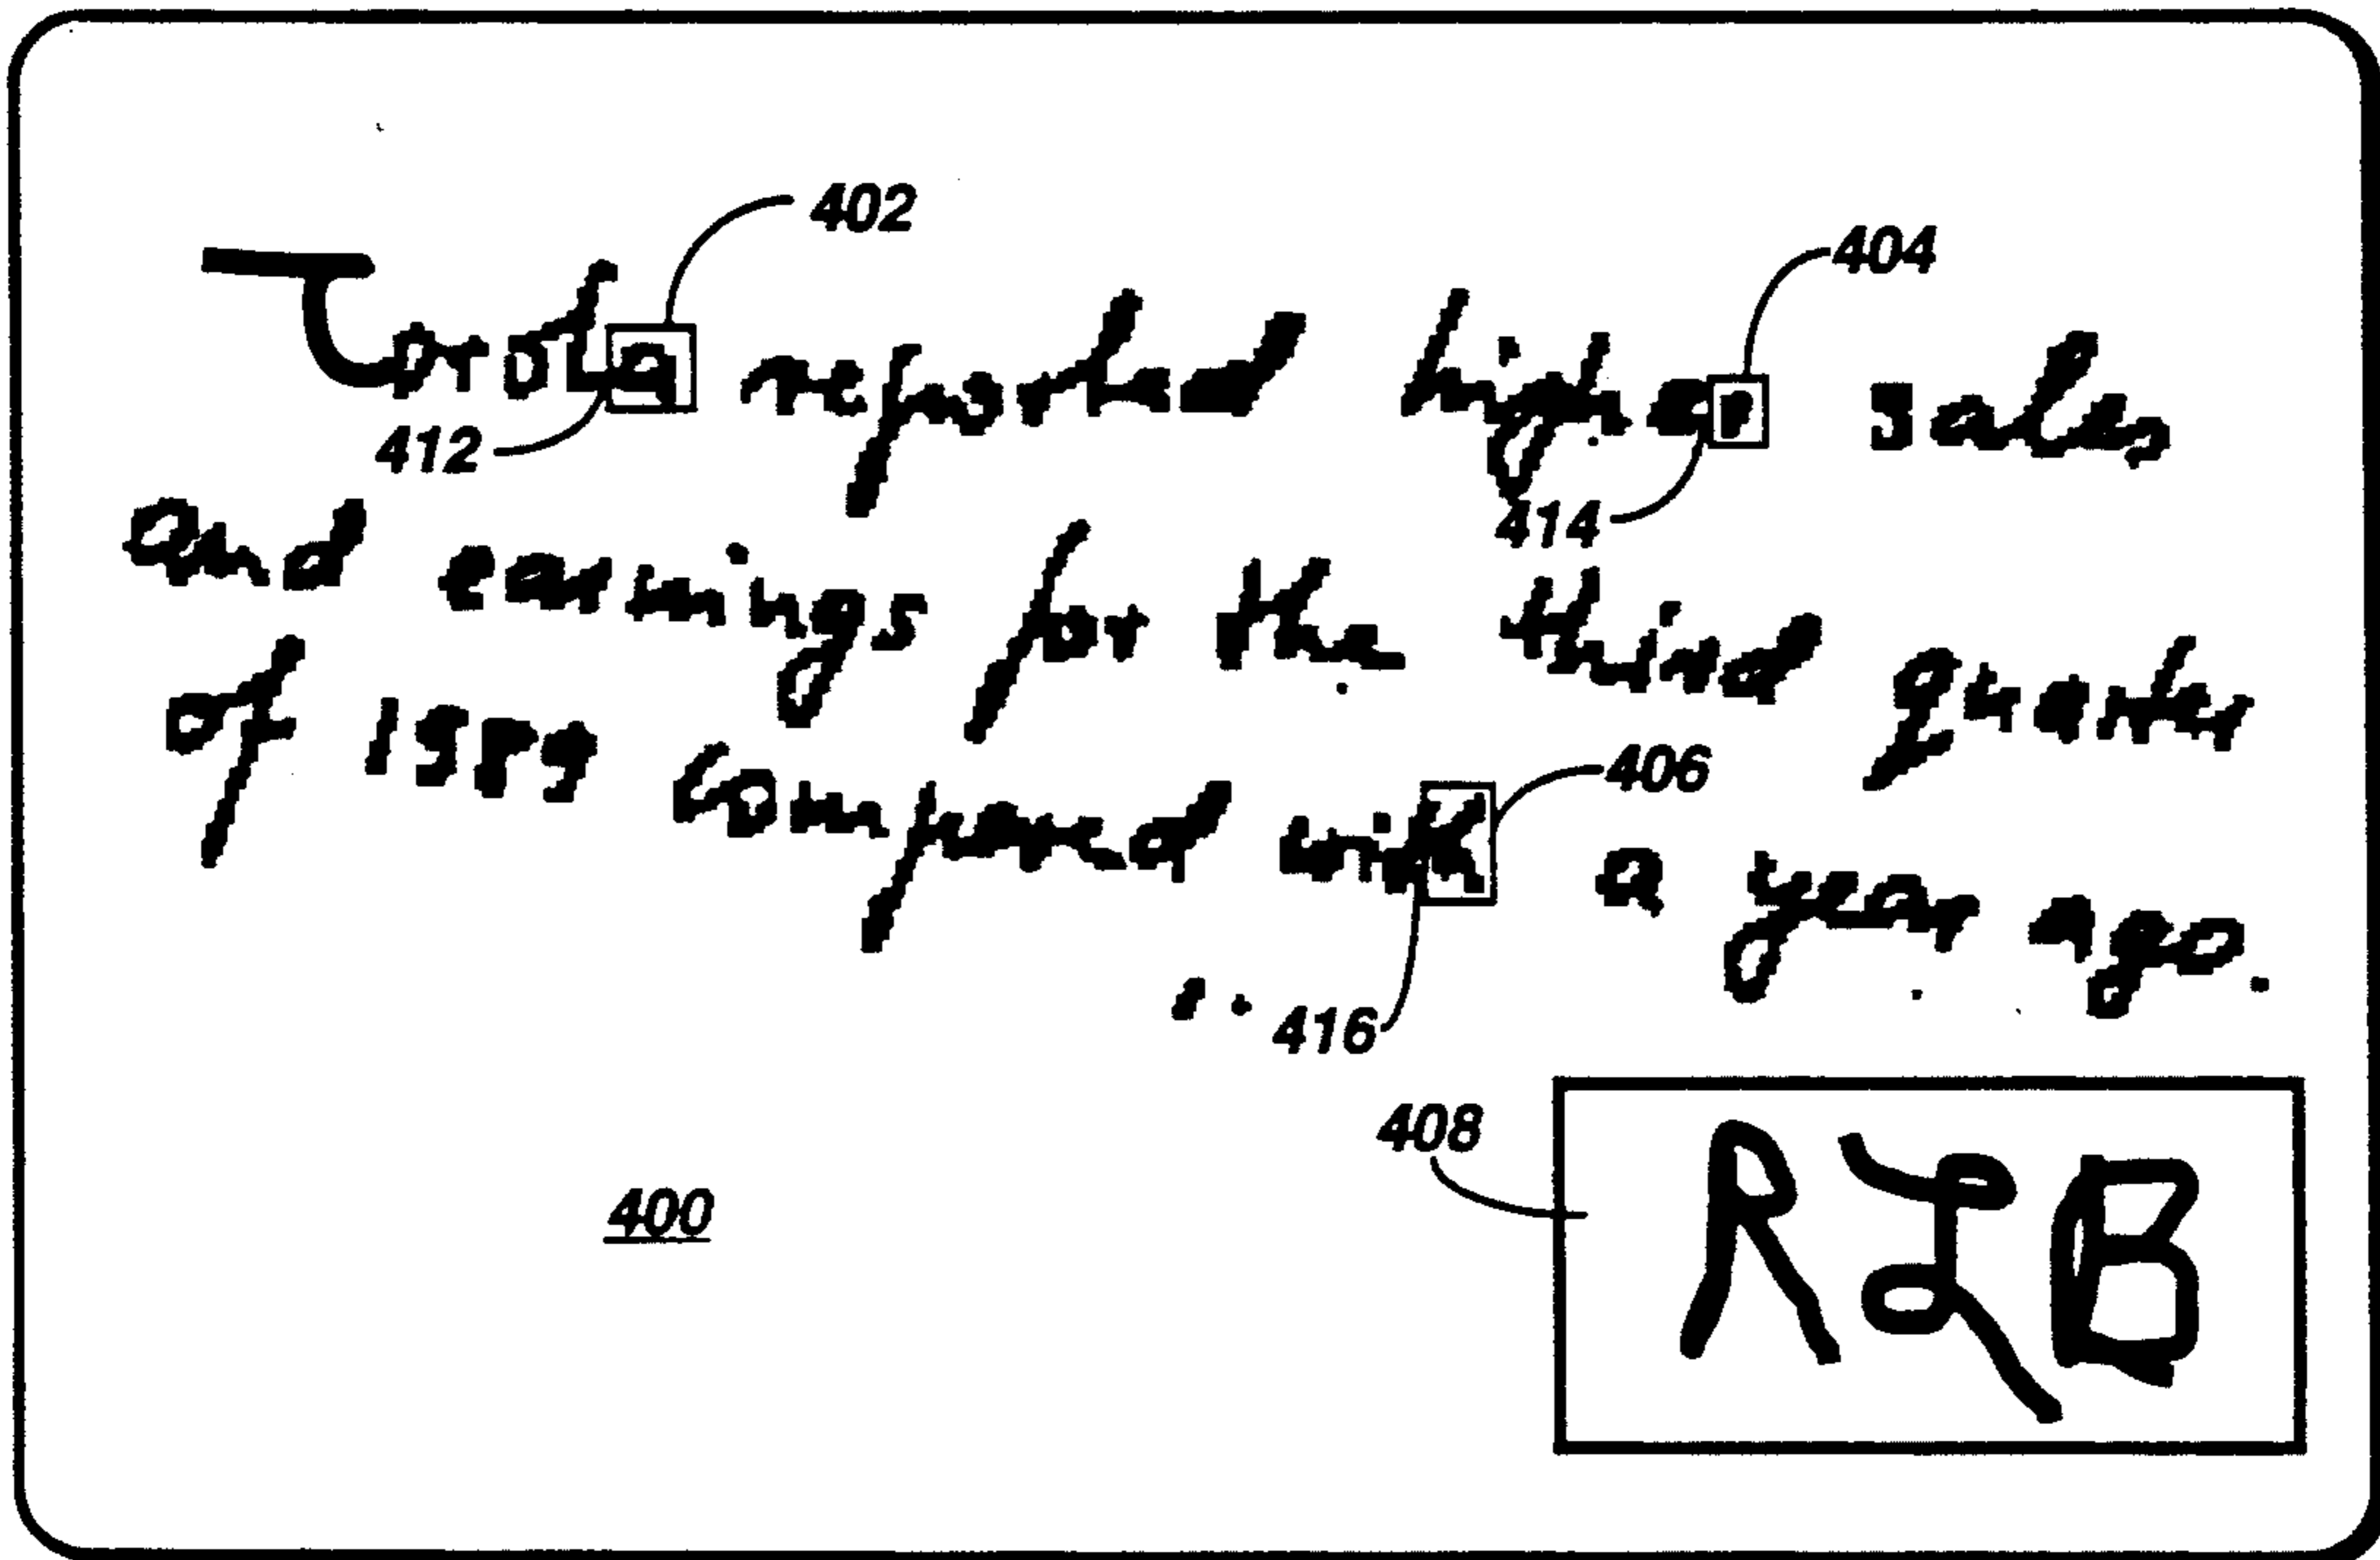 402
404
reported higher sales
412
414
and earnings for the third quarter
of 1989 compared with a year ago.
406
416
408
400